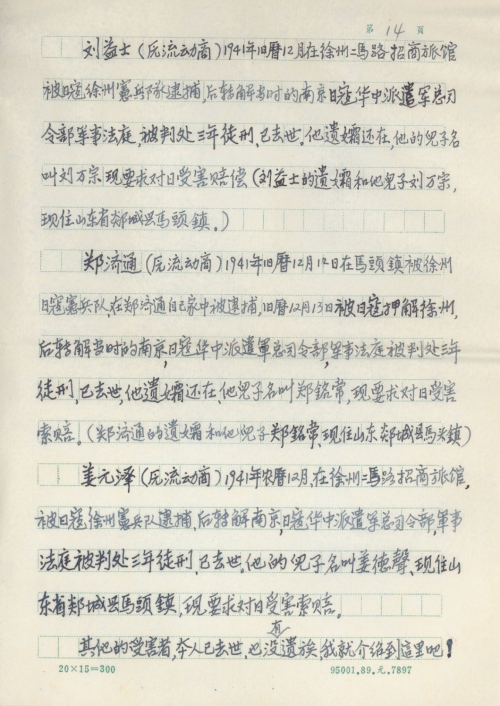 第 14 頁
刘益士（厐流动商）1941年旧曆12月在徐州二馬路招商旅馆
被日寇徐州憲兵隊逮捕，后转解当时的南京日寇华中派遣军总司
令部軍事法庭，被判处三年徒刑，已去世。他遺孀还在，他的兒子名
叫刘万宗，现要求对日受害赔偿（刘益士的遺孀和他兒子刘万宗，
现住山东省郯城县馬頭鎮。）
郑济通（厐流动商）1941年旧曆12月12日在馬頭鎮被徐州
日寇憲兵队，在郑济通自己家中被逮捕，旧曆12月13日被日寇押解徐州，
后转解当时的南京，日寇华中派遣軍总司令部，軍事法庭被判处三年
徒刑，已去世，他遺孀还在，他兒子名叫郑銘常，现要求对日受害
索赔。（郑济通的遺孀和他兒子郑銘常，现住山东郯城县馬头鎮）
姜元泽（厐流动商）1941年农曆12月，在徐州二馬路招商旅馆，
被日寇徐州憲兵队逮捕，后转解南京，日寇华中派遣军总司令部，軍事
法庭被判处三年徒刑，已去世。他的兒子名叫姜德馨，现住山
东省郯城县馬頭鎮，现要求对日受害索赔。
其他的受害者，本人已去世，也没有遺族，我就介绍到這里吧！
20×15=300
95001.89.元.7897